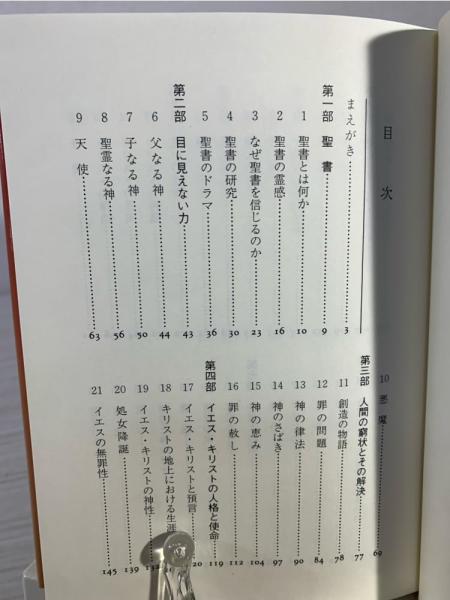 目次
まえがき……3
第一部 聖書……9
1 聖書とは何か……10
2 聖書の霊感……16
3 なぜ聖書を信じるのか……23
4 聖書の研究……30
5 聖書のドラマ……36
第二部 目に見えない力……43
6 父なる神……44
7 子なる神……50
8 聖霊なる神……56
9 天使……63
10 悪魔……69
第三部 人間の窮状とその解決……77
11 創造の物語……78
12 罪の問題……84
13 神の律法……90
14 神のさばき……97
15 神の恵み……104
16 罪の赦し……112
第四部 イエス・キリストの人格と使命……119
17 イエス・キリストと預言……120
18 キリストの地上における生涯
19 イエス・キリストの神性……132
20 処女降誕……139
21 イエスの無罪性……145